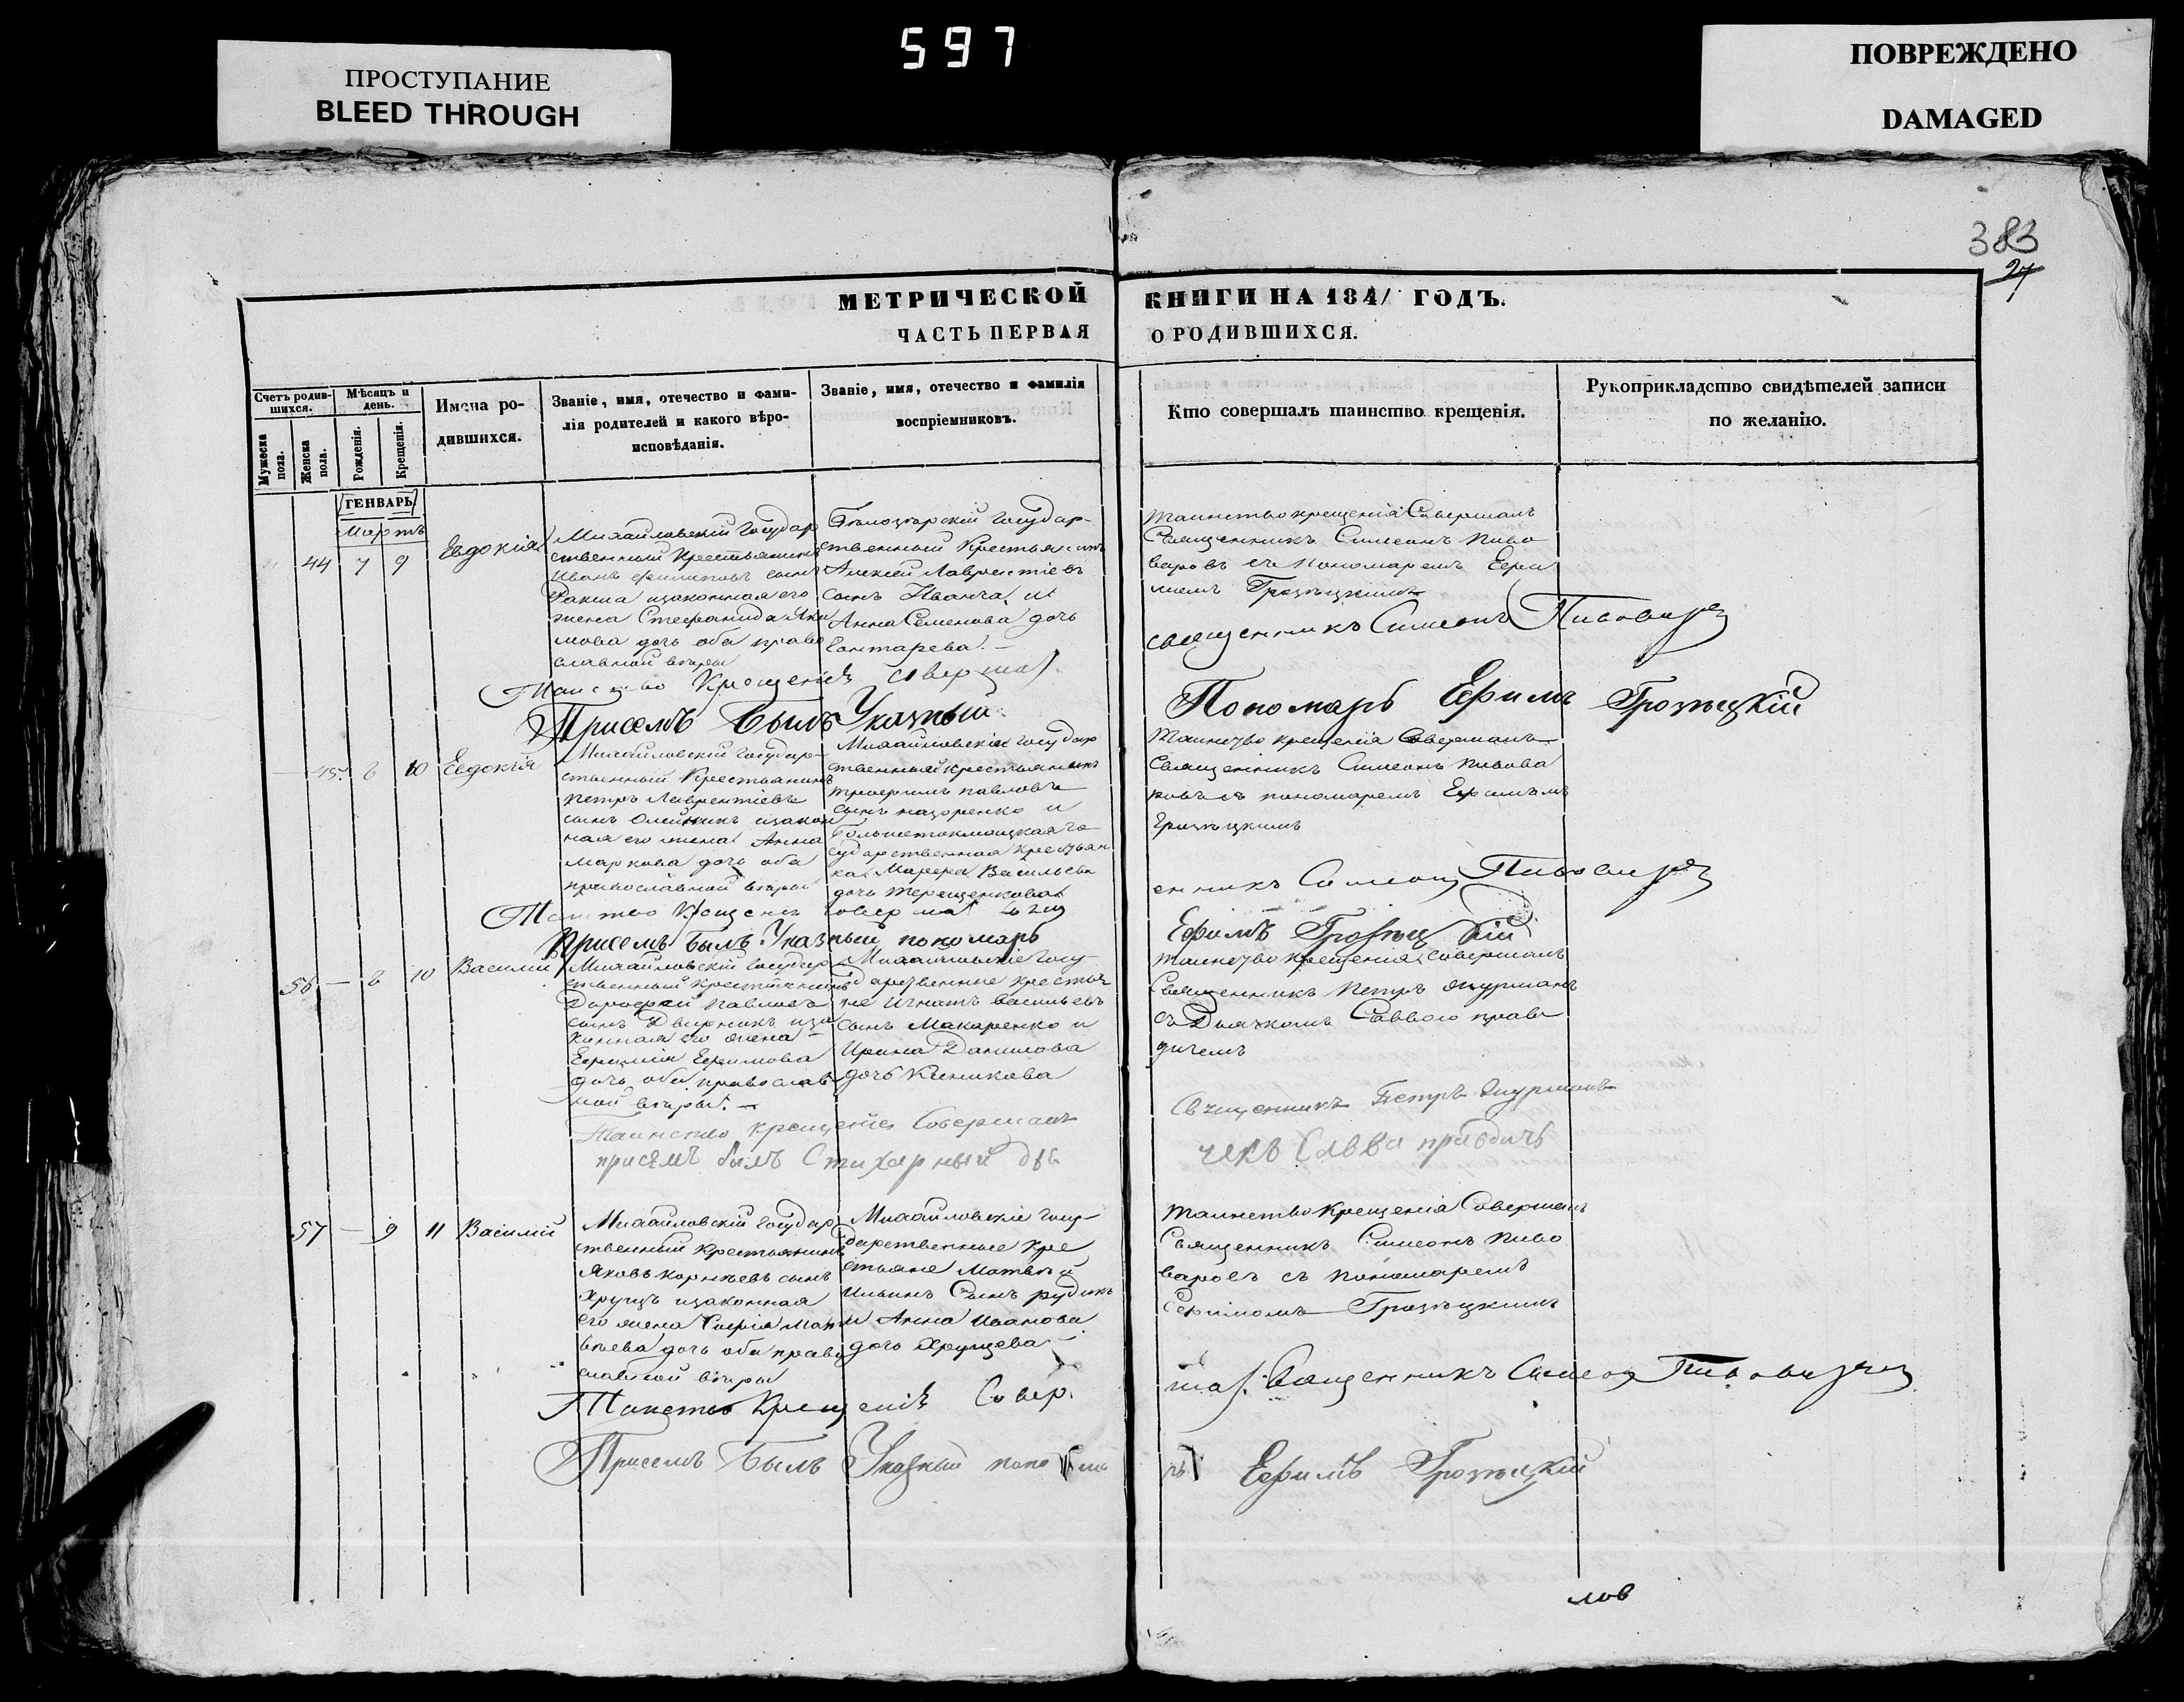 597
ПРОСТУПАНИЕ
BLEED THROUGH
ПОВРЕЖДЕНО
DAMAGED
383
27
МЕТРИЧЕСКОЙ КНИГИ НА 1841 ГОДЪ.
ЧАСТЬ ПЕРВАЯ О РОДИВШИХСЯ.
Счетъ родив-
шихся.
Мужеска
пола.
Женска
пола.
Мѣсяцъ и
день.
Рожденія.
Крещенія.
Имена ро-
дившихся.
Званіе, имя, отечество и фами-
лія родителей и какого вѣро-
исповѣданія.
Званіе, имя, отечество и фамилія
воспріемниковъ.
Кто совершалъ таинство крещенія.
Рукоприкладство свидѣтелей записи
по желанію.
ГЕНВАРЬ
Мартъ
44 7 9 Евдокія
Михайловскій Государ
ственный Крестьянинъ
Иванъ Филиповъ сынъ
изаконная его
жена Стефанида Яки
мова дочь оба право
славной вѣры
Государ-
ственный Крестьянинъ
Алексей Лаврентіевъ
сынъ Иванча и
Анна Семенова дочь
Гонтарева.
Таинство крещенія Совершалъ
Священникъ Симеонъ Пиво
варовъ съ Пономаремъ Ефи
момъ Грозецкимъ
Таинство Крещенія совершал
священникъ Симеонъ Пивоваров
Присемъ Былъ Указный
Пономарь Ефимъ Грозецкій
45 8 10 Евдокія
Михайловскій Государ-
ственный Крестьянинъ
Петръ Лаврентіевъ
сынъ Олейникъ изакон
ная его жена Анна
Маркова дочь оба
православной вѣры
Михайловскій Государ
ственный Крестьянинъ
Трофимъ Павловъ
сынъ Назаренко и
Большетокмацкая го
сударственная Крестьян
ка Марфа Васильева
дочь Терещенкова
Таинство крещенія Совершалъ
Священникъ Симеонъ Пивова
ровъ съ пономаремъ Ефимомъ
Грозецкимъ
Таинство Крещенія совершал свящ
енникъ Симеонъ Пивоваров
Присемъ Былъ Указный пономарь
Ефимъ Грозецкій
56 — 8 10 Василій
Михайловскій Государ
ственный Крестьянинъ
Дорофей Павловъ
сынъ Дворникъ иза
конная его жена
Ефимія Ефимова
дочь оба православ
ной вѣры.
Михайловскіе Госу-
дарственные крестья
не Игнатъ Васильевъ
сынъ Макаренко и
Ирина Данилова
дочь
Таинство крещенія совершалъ
Священникъ Петръ Шурманъ
съ Дьячкомъ Саввою Прав
дичемъ
Таинство крещенія Совершалъ
Священникъ Петръ Шурманъ
присемъ былъ Стихарный дья
чекъ Савва Правдичь
57 — 9 11 Василій
Михайловскій Государ
ственный крестьянинъ
Яковъ Корнѣевъ сынъ
Хрущъ изаконная
его жена Софія Мат
вѣева дочь оба право
славной вѣры
Михайловскіе Госу-
дарственные кре
стьяне Матвѣй
Ильинъ Сынъ Рудикъ
и Анна Иванова
дочь Хрущева
Таинство крещенія Совершалъ
Священникъ Симеонъ Пиво
варовъ съ Пономаремъ
Ефимомъ Грозецкимъ
Таинство Крещенія Совер.
шал. Священникъ Симеон Пивоваров
Присемъ Былъ Указный понома
рь Ефимъ Грозецкій
лов